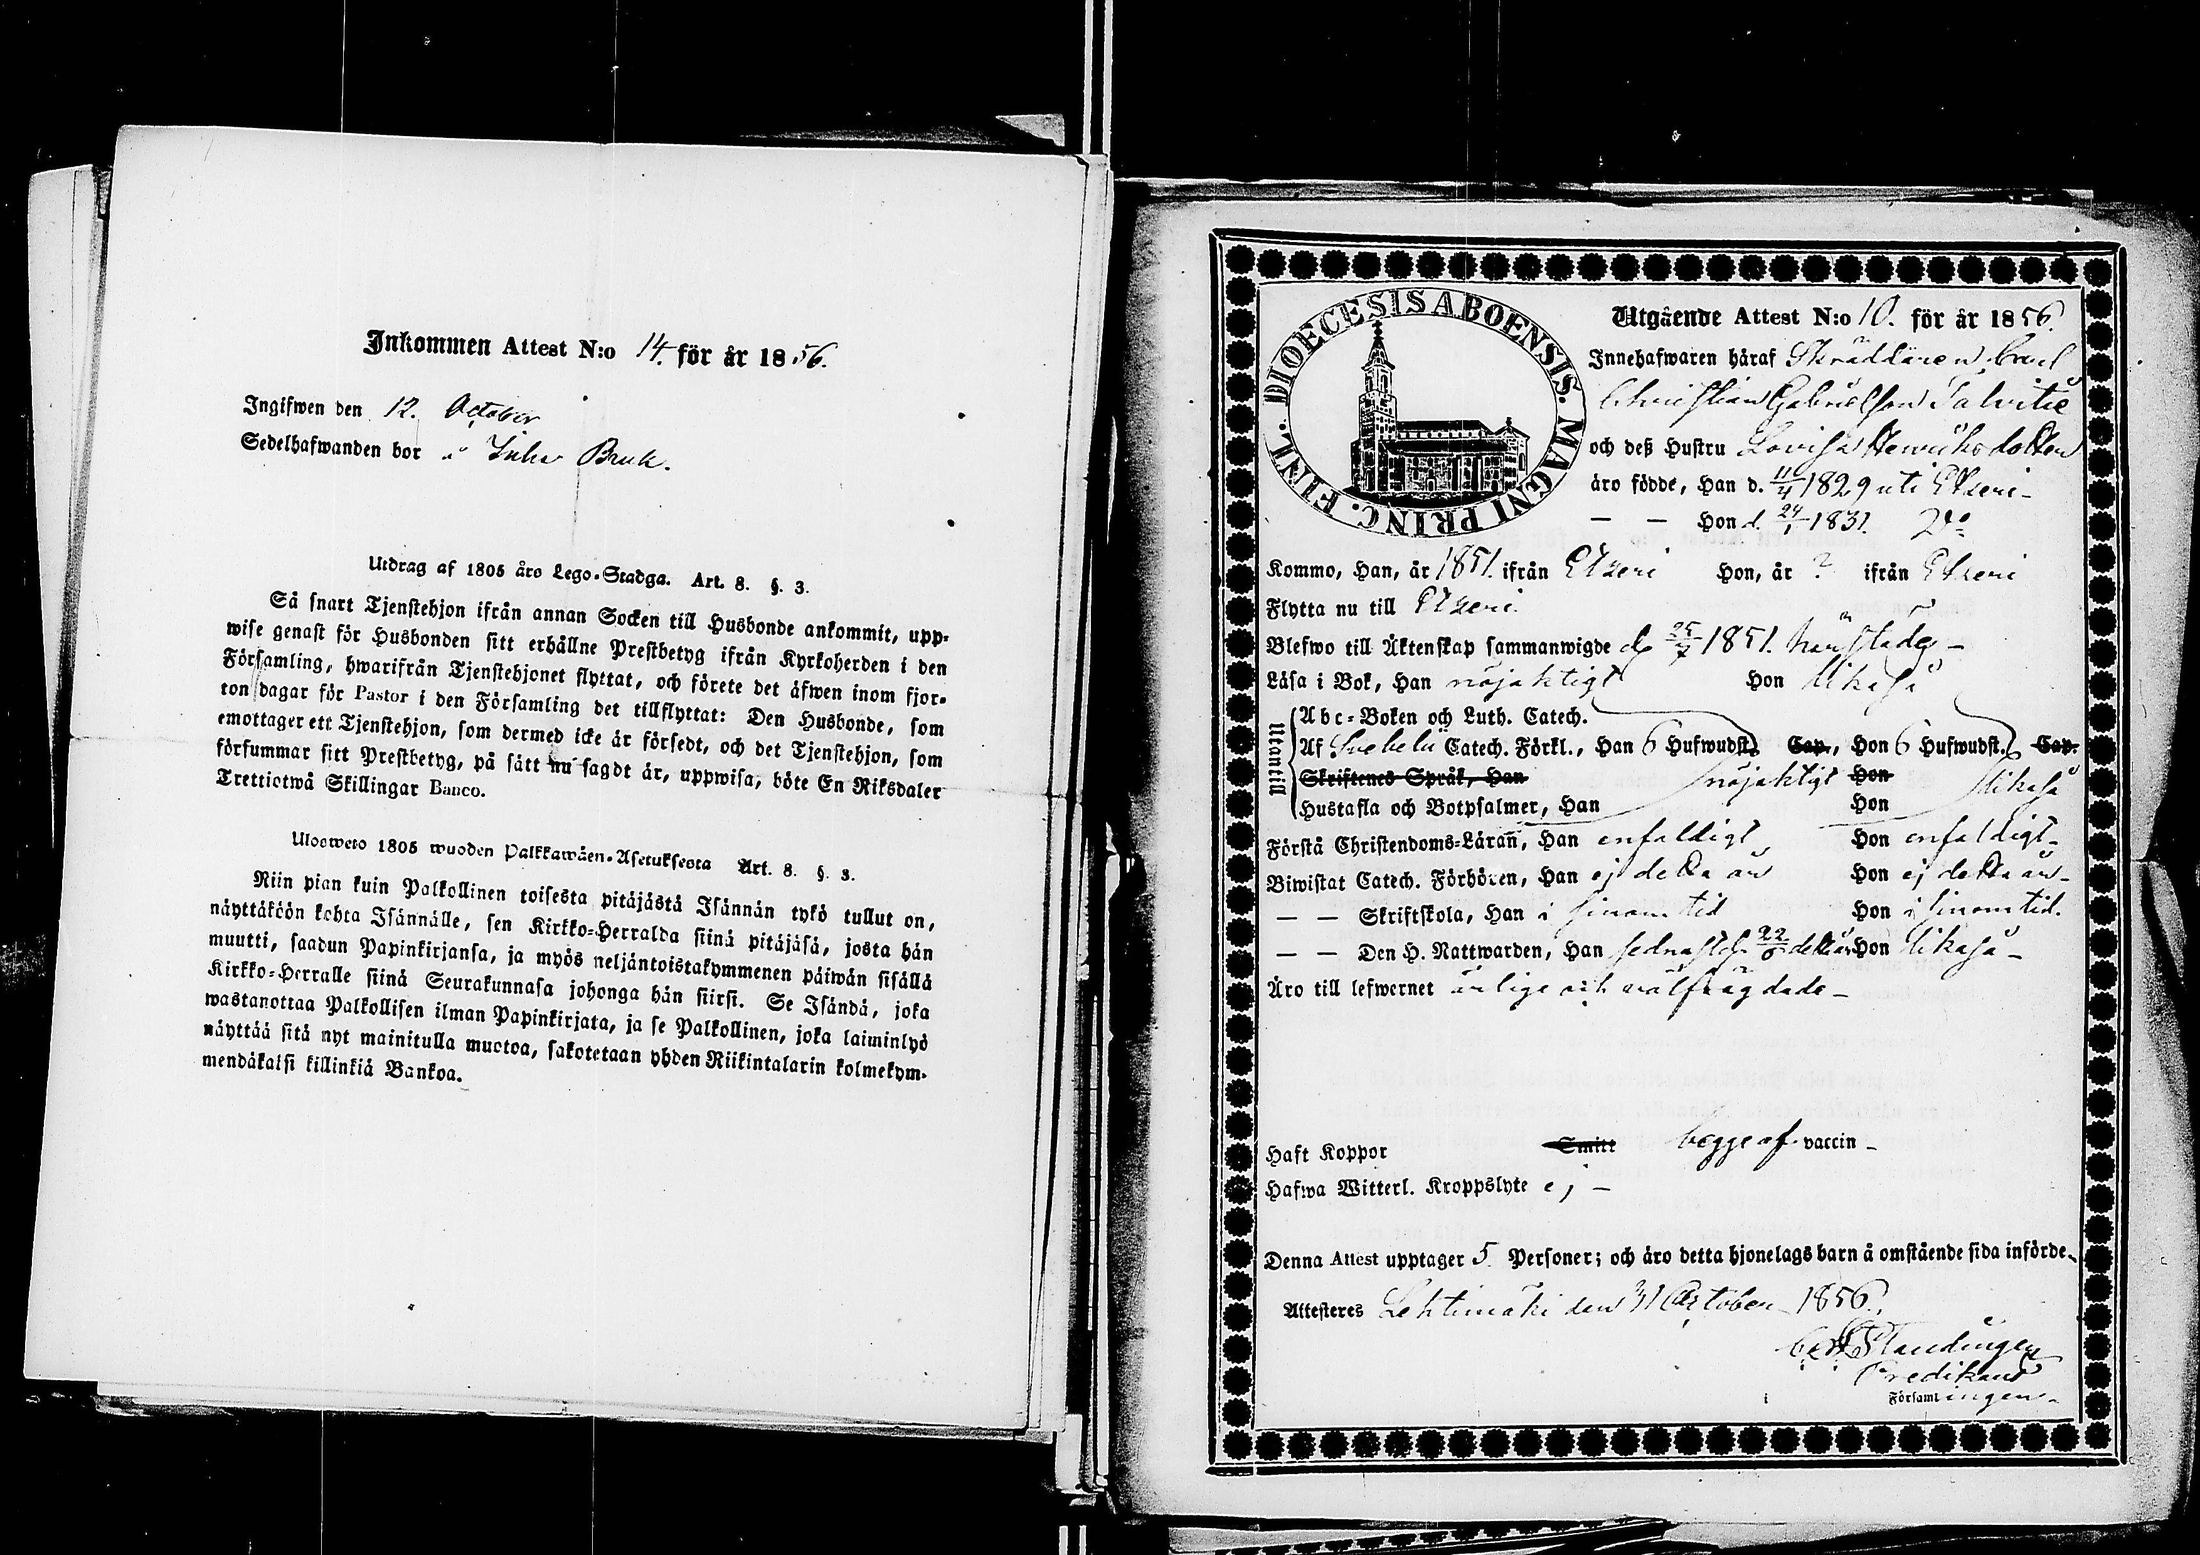 Inkommen Attest N:o 14. för år 1856.
Ingifwen den 12. October
Sedelhafwanden bor å Inha Bruk.
Utdrag af 1805 års Lego-Stadga. Art. 8. §. 3.
Så snart Tjenstehjon ifrån annan Socken till Husbonde ankommit, upp-
wise genast för Husbonden sitt erhållne Prestbetyg ifrån Kyrkoherden i den
Församling, hwarifrån Tjenstehjonet flyttat, och förete det äfwen inom fjor-
ton dagar för Pastor i den Församling det tillflyttat: Den Husbonde, som
emottager ett Tjenstehjon, som dermed icke är försedt, och det Tjenstehjon, som
försummar sitt Prestbetyg, på sätt nu sagdt är, uppwisa, böte En Riksdaler
Trettiotwå Skillingar Banco.
Ulosweto 1805 wuoden Palkkawäen-Asetuksesta Art. 8. §. 3.
Niin pian kuin Palkollinen toisesta pitäjästä Isännän tykö tullut on,
näyttäköön kohta Isännälle, sen Kirkko-Herralda siinä pitäjäsä, josta hän
muutti, saadun Papinkirjansa, ja myös neljäntoistakymmenen päiwän sisällä
Kirkko-Herralle siinä Seurakunnasa johonga hän siirsi. Se Isändä, joka
wastanottaa Palkollisen ilman Papinkirjata, ja se Palkollinen, joka laiminlyö
näyttää sitä nyt mainitulla muotoa, sakotetaan yhden Riikintalarin kolmekym-
mendäkaksi killinkiä Bankoa.
FINL. DIOECESIS ABOENSIS. MAGNI PRINC.
Utgående Attest N:o 10. för år 1856.
Innehafwaren häraf Skräddaren Carl
Christian Gabrielsson Salvitie
och deß Hustru Lovisa Henriksdotter
äro födde, Han d. 11/4 1829 uti Etzeri -
— — Hon d. 24/1 1831. D:o
Kommo, Han, år 1851. ifrån Etzeri Hon, år ? ifrån Etzeri
Flytta nu till Etzeri.
Blefwo till Äktenskap sammanwigde d. 25/7 1851. härstädes -
Läsa i Bok, Han nöjaktigt Hon likaså
Utantill
Abc-Boken och Luth. Catech.
Af Svebelii Catech. Förkl., Han 6 Hufwudst. Cap., Hon 6 Hufwudst. Cap.
Skriftenes Språk, Han nöjaktigt Hon likaså
Hustafla och Botpsalmer, Han Hon
Förstå Christendoms-Läran, Han enfaldigt, Hon enfaldigt -
Biwistat Catech. Förhören, Han ej detta år Hon ej detta år -
— — Skriftskola, Han i sinom tid Hon i sinom tid.
— — Den H. Nattwarden, Han sednast d. 22/6 detta år Hon likaså -
Äro till lefwernet ärlige och välfrägdade -
Haft Koppor Smitt begge af vaccin -
Hafwa Witterl. Kroppslyte ej -
Denna Attest upptager 5 Personer; och äro detta hjonelags barn å omstående sida införde.
Attesteres Lehtimäki den 31 October 1856.
Predikant
Församlingen.